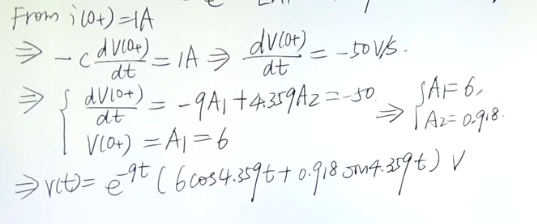 From i(0+)=1A
⇒ -C dV(0+)/dt = 1A ⇒ dV(0+)/dt = -50V/s.
⇒ { dV(0+)/dt = -9A1+4.359A2=-50 ⇒ { A1=6,
V(0+) = A1=6 A2=0.918.
⇒ v(t)= e^-9t (6cos4.359t+0.918sin4.359t) V